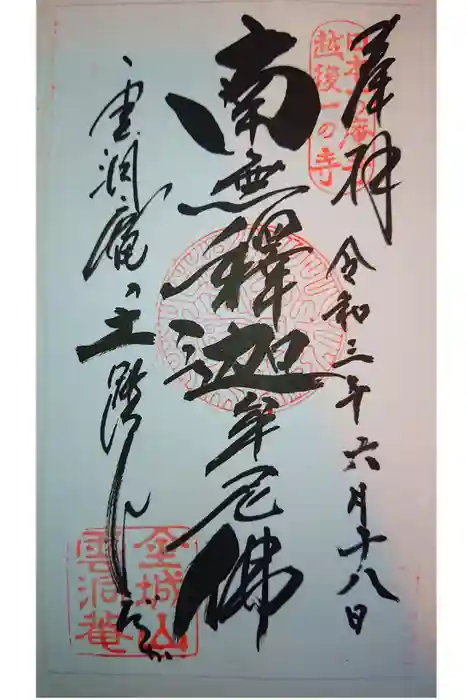 奉拝
令和三年六月十八日
越後一の寺
南無釋迦牟尼佛
雲洞庵の土踏んだか
金城山
雲洞庵